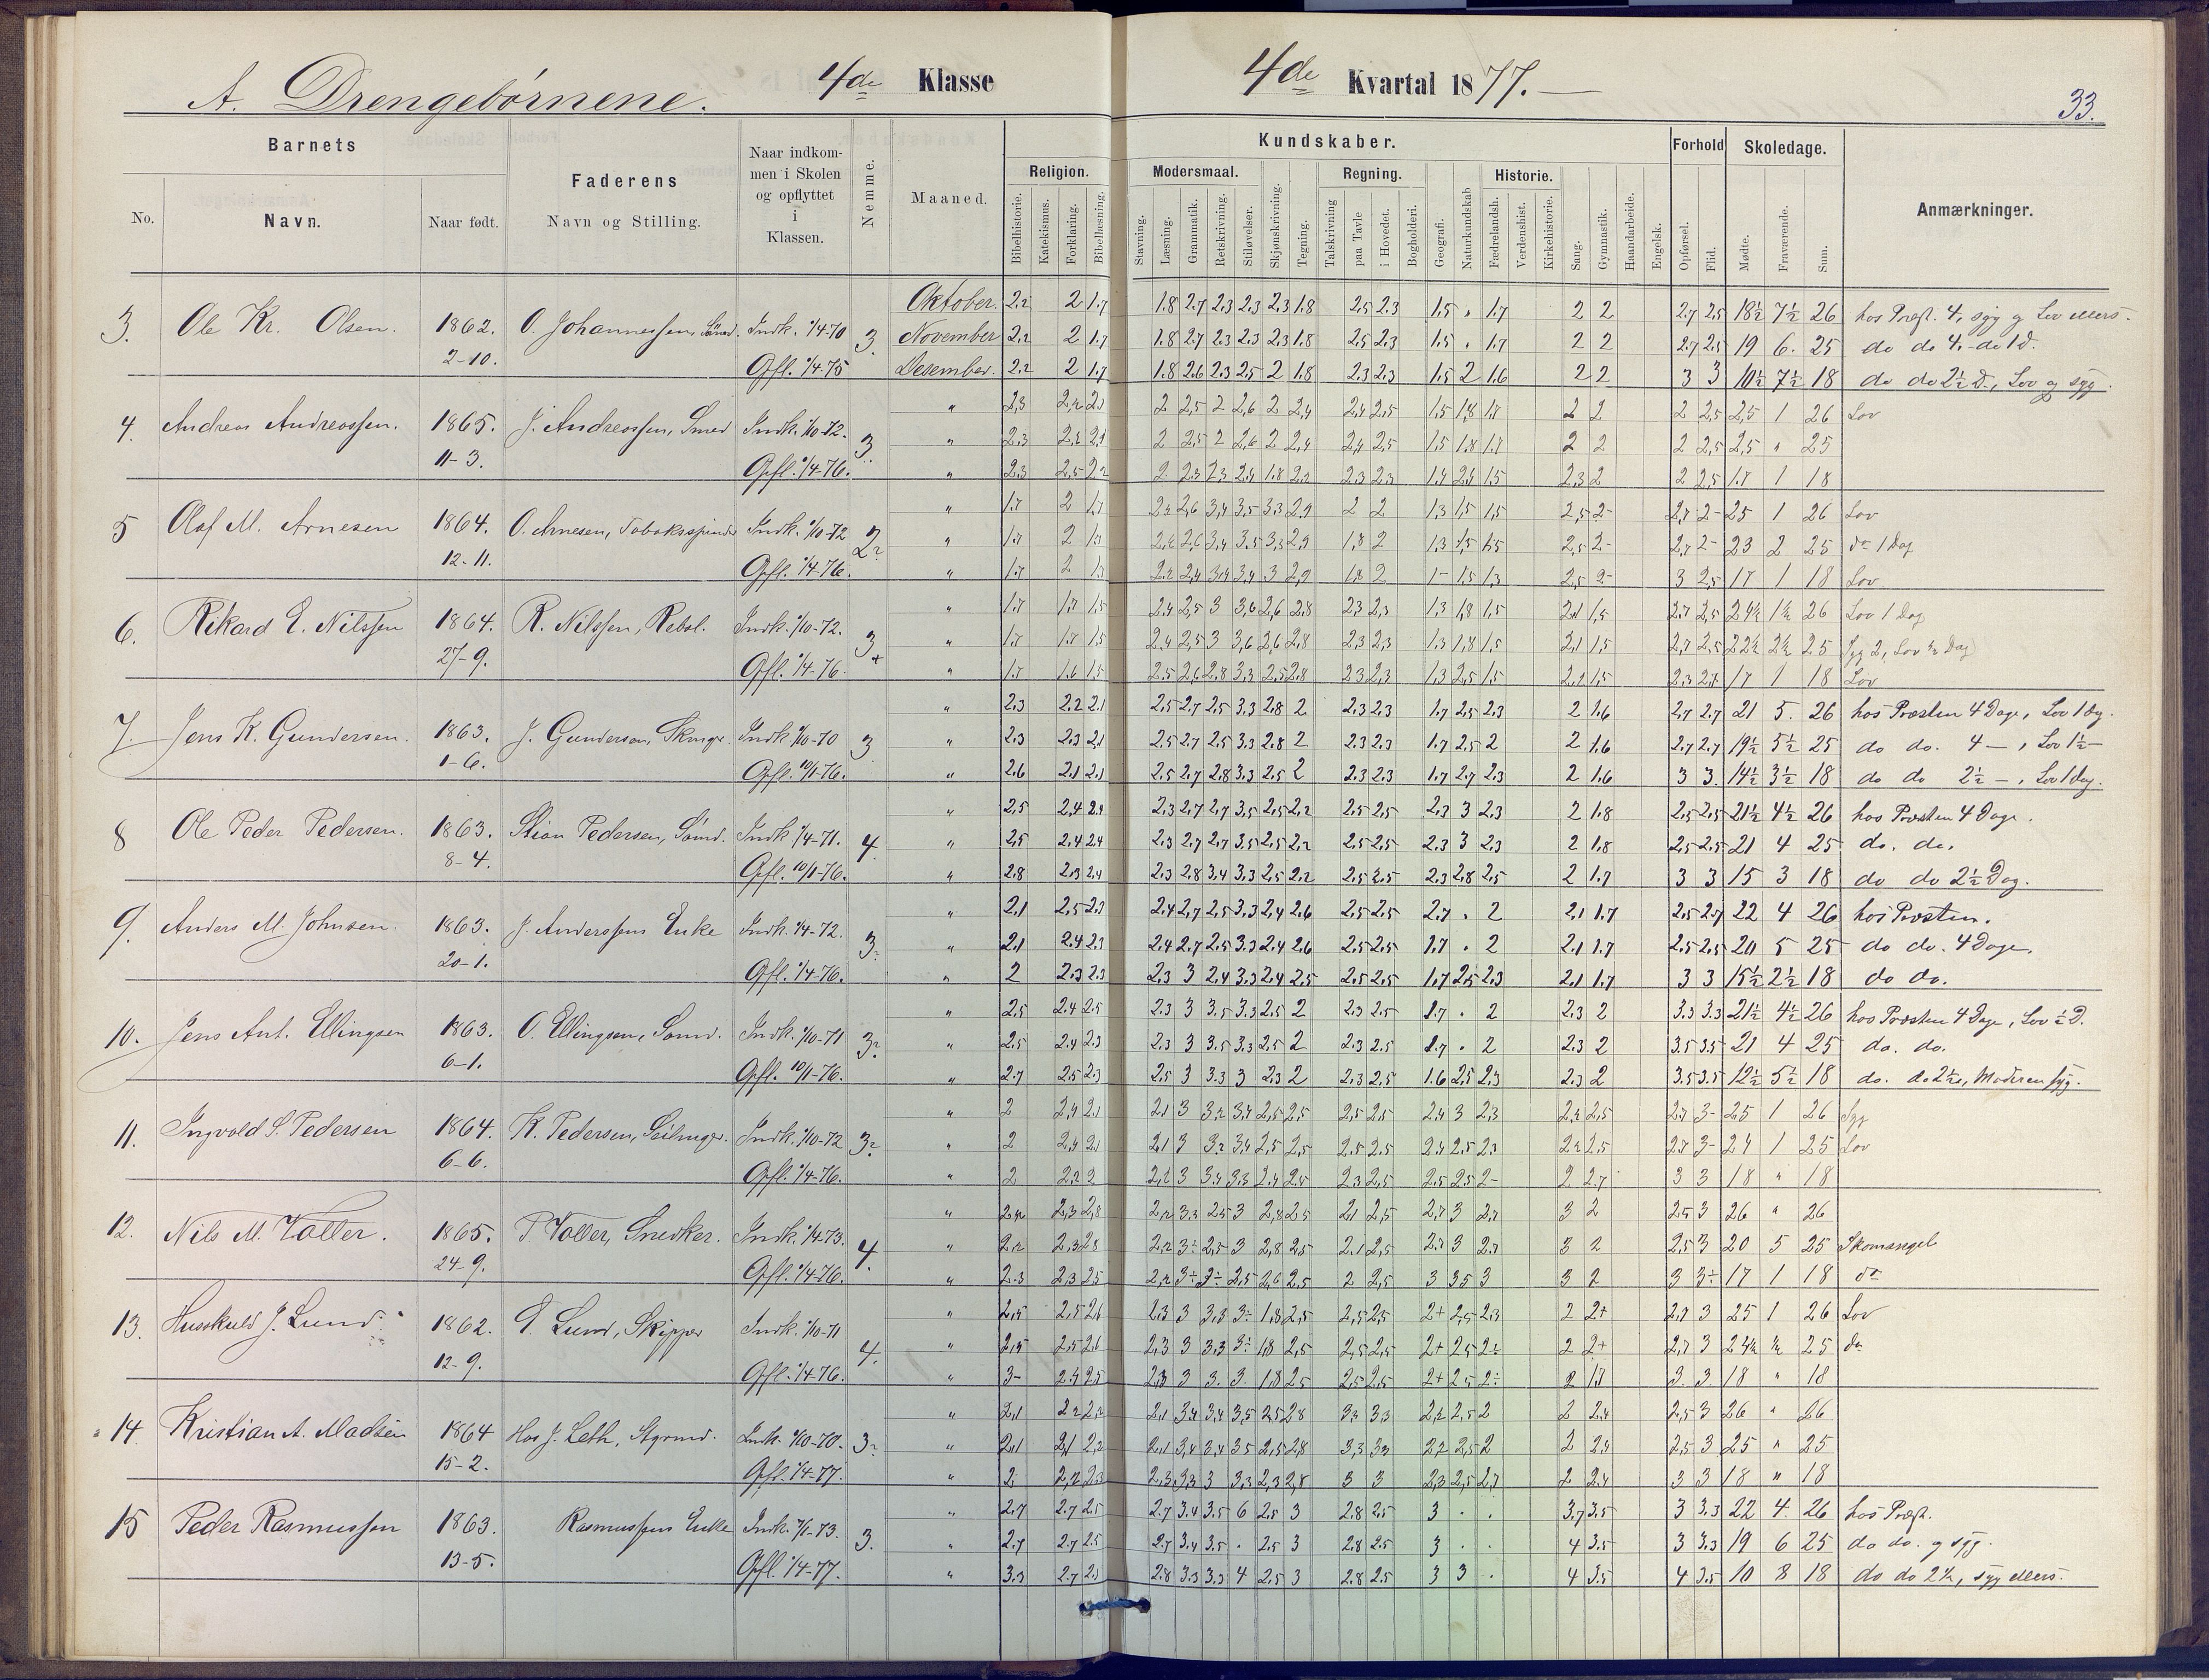 A. Drengebørnene. 4de Klasse
4de Kvartal 1877. —
33.
Barnets
Faderens
Naar indkommen i Skolen og opflyttet i Klassen.
Nemme.
Maaned.
Religion.
Kundskaber.
Modersmaal.
Regning.
Historie.
Forhold
Skoledage.
Anmærkninger.
No.
Navn.
Naar født.
Navn og Stilling.
Bibelhistorie. Katekismus. Forklaring. Bibellæsning.
Stavning. Læsning. Grammatik. Retskrivning. Stiløvelser. Skjønskrivning. Tegning. Talskrivning paa Tavle i Hovedet. Bogholderi. Geografi. Naturkundskab Fædrelandsh. Verdenshist. Kirkehistorie. Sang. Gymnastik. Haandarbeide. Engelsk. Opførsel. Flid. Mødte. Fraværende. Sum.
3. Ole Kr. Olsen. 1862. 2-10. O. Johannessen, Sømd. Indk. 1/4-70 Opfl. 1/4-75 3.
Oktober. 2.2 2 1.7 1.8 2.7 2.3 2.3 2.3 1.8 2.5 2.3 1.5 . 1.7 2 2 2.7 2.5 18½ 7½ 26 hos Præst. 4, syg og Lov
November 2.2 2 1.7 1.8 2.7 2.3 2.3 2.3 1.8 2.5 2.3 1.5 . 1.7 2 2 2.7 2.5 19 6. 25 do do 4, do 1 d.
Desember. 2.2 2 1.7 1.8 2.6 2.3 2.5 2 1.8 2.3 2.3 1.5 2 1.6 2 2 3 3 10½ 7½ 18 do do 2½ D., Lov og syg.
4. Andreas Andreassen. 1865. 11-3. J. Andreassen, Smed Indk. 1/10-72. Opfl. 1/4-76. 3.
" 2,3 2 2,5 2 2,6 2 2,4 2,4 2,5 1,5 1,8 1,7 2 2 2 2,5 2,5 1 26 Lov
" 2,3 2 2,5 2 2,6 2 2,4 2,4 2,5 1.5 1.8 1.7 2 2 2 2,5 2,5 " 25
" 2,3 2 2,3 2,3 2,4 1.8 2,3 2,3 2 2,5 17 1 18
5 Olaf M. Arnesen 1864. 12-11. O. Arnesen, Tobaksspinder Indk. 1/10-72 Opfl. 1/4-76. 2?
" 1.7 2 1.7 2,6 3,4 3,5 3,3 2,9 2 2 1,3 1,5 1,5 2,5 2- 2,7 2- 25 1 26 Lov
" 1.7 2 2,6 3,4 3,5 3,3 2,9 1,8 2 1,3 1,5 1,5 2,5 2- 2,7 2- 23 2 25 do 1 Dag
" 1.7 2 2,4 3,4 3,4 3 2,9 1,8 2 1- 1.5 1.3 2,5 2- 3 2,5 17 1 18 Lov
6. Rikard E. Nilssen 1864. 27-9. R. Nilssen, Rebsl. Indk. 1/10-72. Opfl. 1/4-76. 3+
" 1.7 1.7 1.5 2,4 2,5 3 3,6 2,6 2,8 2,3 2,3 1,3 1,8 1,5 2,1 1,5 2.7 2,5 24½ 1½ 26 Lov 1 Dag
" 1.7 1.7 1.5 2,4 2,5 3 3,6 2,6 2,8 2,3 2,3 1,3 1,8 1,5 2,1 1,5 2,7 2,5 22½ 2½ 25 Syg 2, Lov ½ Dag
" 1.7 1.6 1.5 2.5 2,6 2,8 3,3 2,5 2.8 2,3 2,3 1,3 2,5 1,5 2,2 1,5 2,3 2,7 17 1 18 Lov
7. Jens K. Gundersen. 1863. 1-6. J. Gundersen, Indk 1/10-70 Opfl. 10/1-76. 3
" 2.3 2.2 2.1 2.5 2.7 2.5 3.3 2.8 2 2.3 2.3 1.7 2.5 2.3 2 1.6 2.7 2.7 21 5. 26 hos Præsten 4 Dage, Lov 1 Dag.
" 2.3 2.3 2.1 2.5 2.7 2.5 3.3 2.8 2 2.3 2.3 1.7 2.5 2 2 1.6 2.7 2.7 19½ 5½ 25 do do. 4 —, Lov 1½ —
" 2.6 2.1 2.1 2.5 2.7 2.8 3.3 2.5 2 2.3 2.3 1.7 2.7 2.3 2 1.6 3 3. 14½ 3½ 18 do do 2½ —, Lov 1 Dag.
8 Ole Peder Pedersen. 1863. 8-4. Stian Pedersen, Sømd. Indk. 1/4-71. Opfl. 10/1-76. 4.
" 2.5 2.4 2.4 2.3 2.7 2.7 3.5 2.5 2.2 2.5 2.5 2.3 3 2.3 2 1.8 2.5 2.5 21½ 4½ 26 hos Præsten 4 Dage.
" 2.5 2.4 2.4 2.3 2.7 2.7 3.5 2.5 2.2 2.5 2.5 2.3 3 2.3 2 1.8 2.5 2.5 21 4 25 do. do.
" 2.8 2.3 2.4 2.3 2.8 3.4 3.3 2.5 2.2 2.5 2.5 2.3 2.8 2.5 2 1.7 3 3 15 3 18 do do 2½ Dag.
9. Anders M. Johnsen. 1863. 20-1. J. Anderssens Enke Indk. 1/4-72. Opfl. 1/4-76. 3?
" 2.1 2.5 2.3 2.4 2.7 2.5 3.3 2.4 2.6 2.5 2.5 2.7 . 2 2.1 1.7 2.5 2.7 22 4 26 hos Præsten.
" 2.1 2.4 2.3 2.4 2.7 2.5 3.3 2.4 2.6 2.5 2.5 1.7 . 2 2.1 1.7 2.5 2.5 20 5 25 do do. 4 Dage.
" 2 2.3 2.3 2.3 3 2.4 3.3 2.4 2.5 2.5 2.5 1.7 2.5 2.3 2.1 1.7 3 3 15½ 2½ 18 do do.
10. Jens Ant. Ellingsen 1863. 6-1. O. Ellingsen, Sømd. Indk. 1/10-71 Opfl. 10/1-76. 3?
" 2.5 2.4 2.5 2.3 3 3.5 3.3 2.5 2 2.3 2.5 1.7 . 2 2.3 2 3.3 3.3 21½ 4½ 26 hos Præsten 4 Dage, Lov ½ D.
" 2.5 2.4 2.3 2.3 3 3.5 3.3 2.5 2 2.3 2.5 1.7 . 2 2.3 2 3.5 3.5 21 4 25 do. do.
" 2.7 2.5 2.3 2.5 3 3.3 3 2.3 2 2.3 2.5 1.6 2.5 2.3 2.3 2 3.5 3.5 12½ 5½ 18 do. do 2½, Moderen syg.
11. Ingvald S. Pedersen 1864. 6-6. K. Pedersen, Indk. 1/10-72 Opfl. 1/4-76. 3?
" 2 2,4 2,1 2,1 3 3,2 3,4 2,5 2,5 2,5 2,5 2,4 3 2,3 2,2 2,5 2,7 3- 25 1 26 Syg
" 2 2,4 2,1 2,1 3 3,2 3,4 2,5 2,5 2,5 2.5 2.4 2.5 2.3 2.2 2.5 2.7 3- 24 1 25 Lov
" 2 2,2 2 3 3,4 3,3 2,4 2,3 2,5 2.5 2.5 2- 2 2.7 3 3 18 " 18
12. Nils M. Valler. 1865. 24-9. P. Valler, Snedker. Indk. 1/4-73. Opfl. 1/4-76. 4.
" 2,3 2,8 2,2 3,3 2,5 3 2,8 2,5 2,1 2,5 2,7 3 2,7 3 2 2,5 3 26 " 26
" 2,2 2,3 2,8 2,2 3÷ 2,5 3 2,8 2,5 2.1 2,5 2.7 3 2.7 3 2 2,5 3 20 5 25 Skomangel
" 2.3 2,3 2,5 2,2 3÷ 2,5 2,6 2,5 2 2,5 3 3.5 3 3 2 3 3÷ 17 1 18 do
13. Huskuld J. Lund. 1862. 12-9. Lund, Skipper Indk. 1/10-71 Opfl. 1/4-76. 4.
" 2,5 2,5 2,6 2,3 3 3,3 3÷ 1,8 2,5 2,5 2,5 2+ 2,5 2,3 2 2+ 2,7 3 25 1 26 Lov
" 2,5 2,5 2,6 2,3 3 3,3 3÷ 1,8 2,5 2,5 2,5 2+ 2,5 2÷ 2 2+ 2,7 3 24½ ½ 25 do
" 3- 2,3 3 3. 3. 1,8 2,5 2,5 2,5 2+ 2,5 2÷ 2 3. 3. 18 " 18
14. Kristian A. Madsen 1864 15-2. Hos J. Leth, Styrmd. Indk. 1/10-70. Opfl. 1/4-77. 3?
" 2,1 2,2 2,2 2,1 3,4 3,4 3,5 2,5 2,8 3,3 3,3 2,2 2,5 2 2 2,4 2,5 3 26 " 26
" 2,1 2,1 2,2 2,1 3,4 3,4 3,5 2,5 2,8 3,3 3,3 2,2 2,5 2 2 2,4 2,5 3 25 " 25
" 2 2,2 2,3 2,3 3,3 3 3,3 2,3 2,8 3 3 2,3 2,5 2,7 2 2,4 3 3 18 " 18
15 Peder Rasmussen 1863. 13-5. Rasmussens Enke Indk. Opfl. 1/4-77. 3.
" 2.7 2.7 2.5 2.7 3.4 3.5 6 2.5 3 2.8 2.5 3 . . 3.7 3.5 3 3.3 22 4. 26 hos Præst.
" 2.7 2.7 2.5 2.7 3.4 3.5 . 2.5 3 2.8 2.5 3 . . 4 3.5 3 3.3 19 6 25 do do. og syg.
" 3.3 2.7 2.8 3.3 3.3 4 2.5 3 2.8 2.5 3 3 . 4 3.5 4 3.5 10 8 18 do do 2½, syg